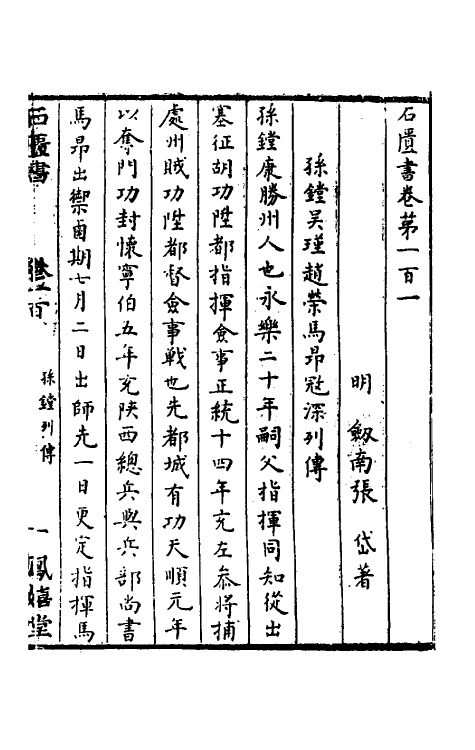 石匱書卷第一百一
明 劔南張 岱著
孫鏜吴瑾趙榮馬昂冦深列傳
孫鏜康勝州人也永樂二十年嗣父指揮同知從出
塞征胡功陞都指揮僉事正統十四年充左叅將捕
處州賊功陞都督僉事戰也先都城有功天順元年
以奪門功封懷寧伯五年充陝西總兵與兵部尚書
馬昂出禦甫期七月二日出師先一日更定指揮馬
石匱書
孫鏜列傳
一
鳳嬉堂